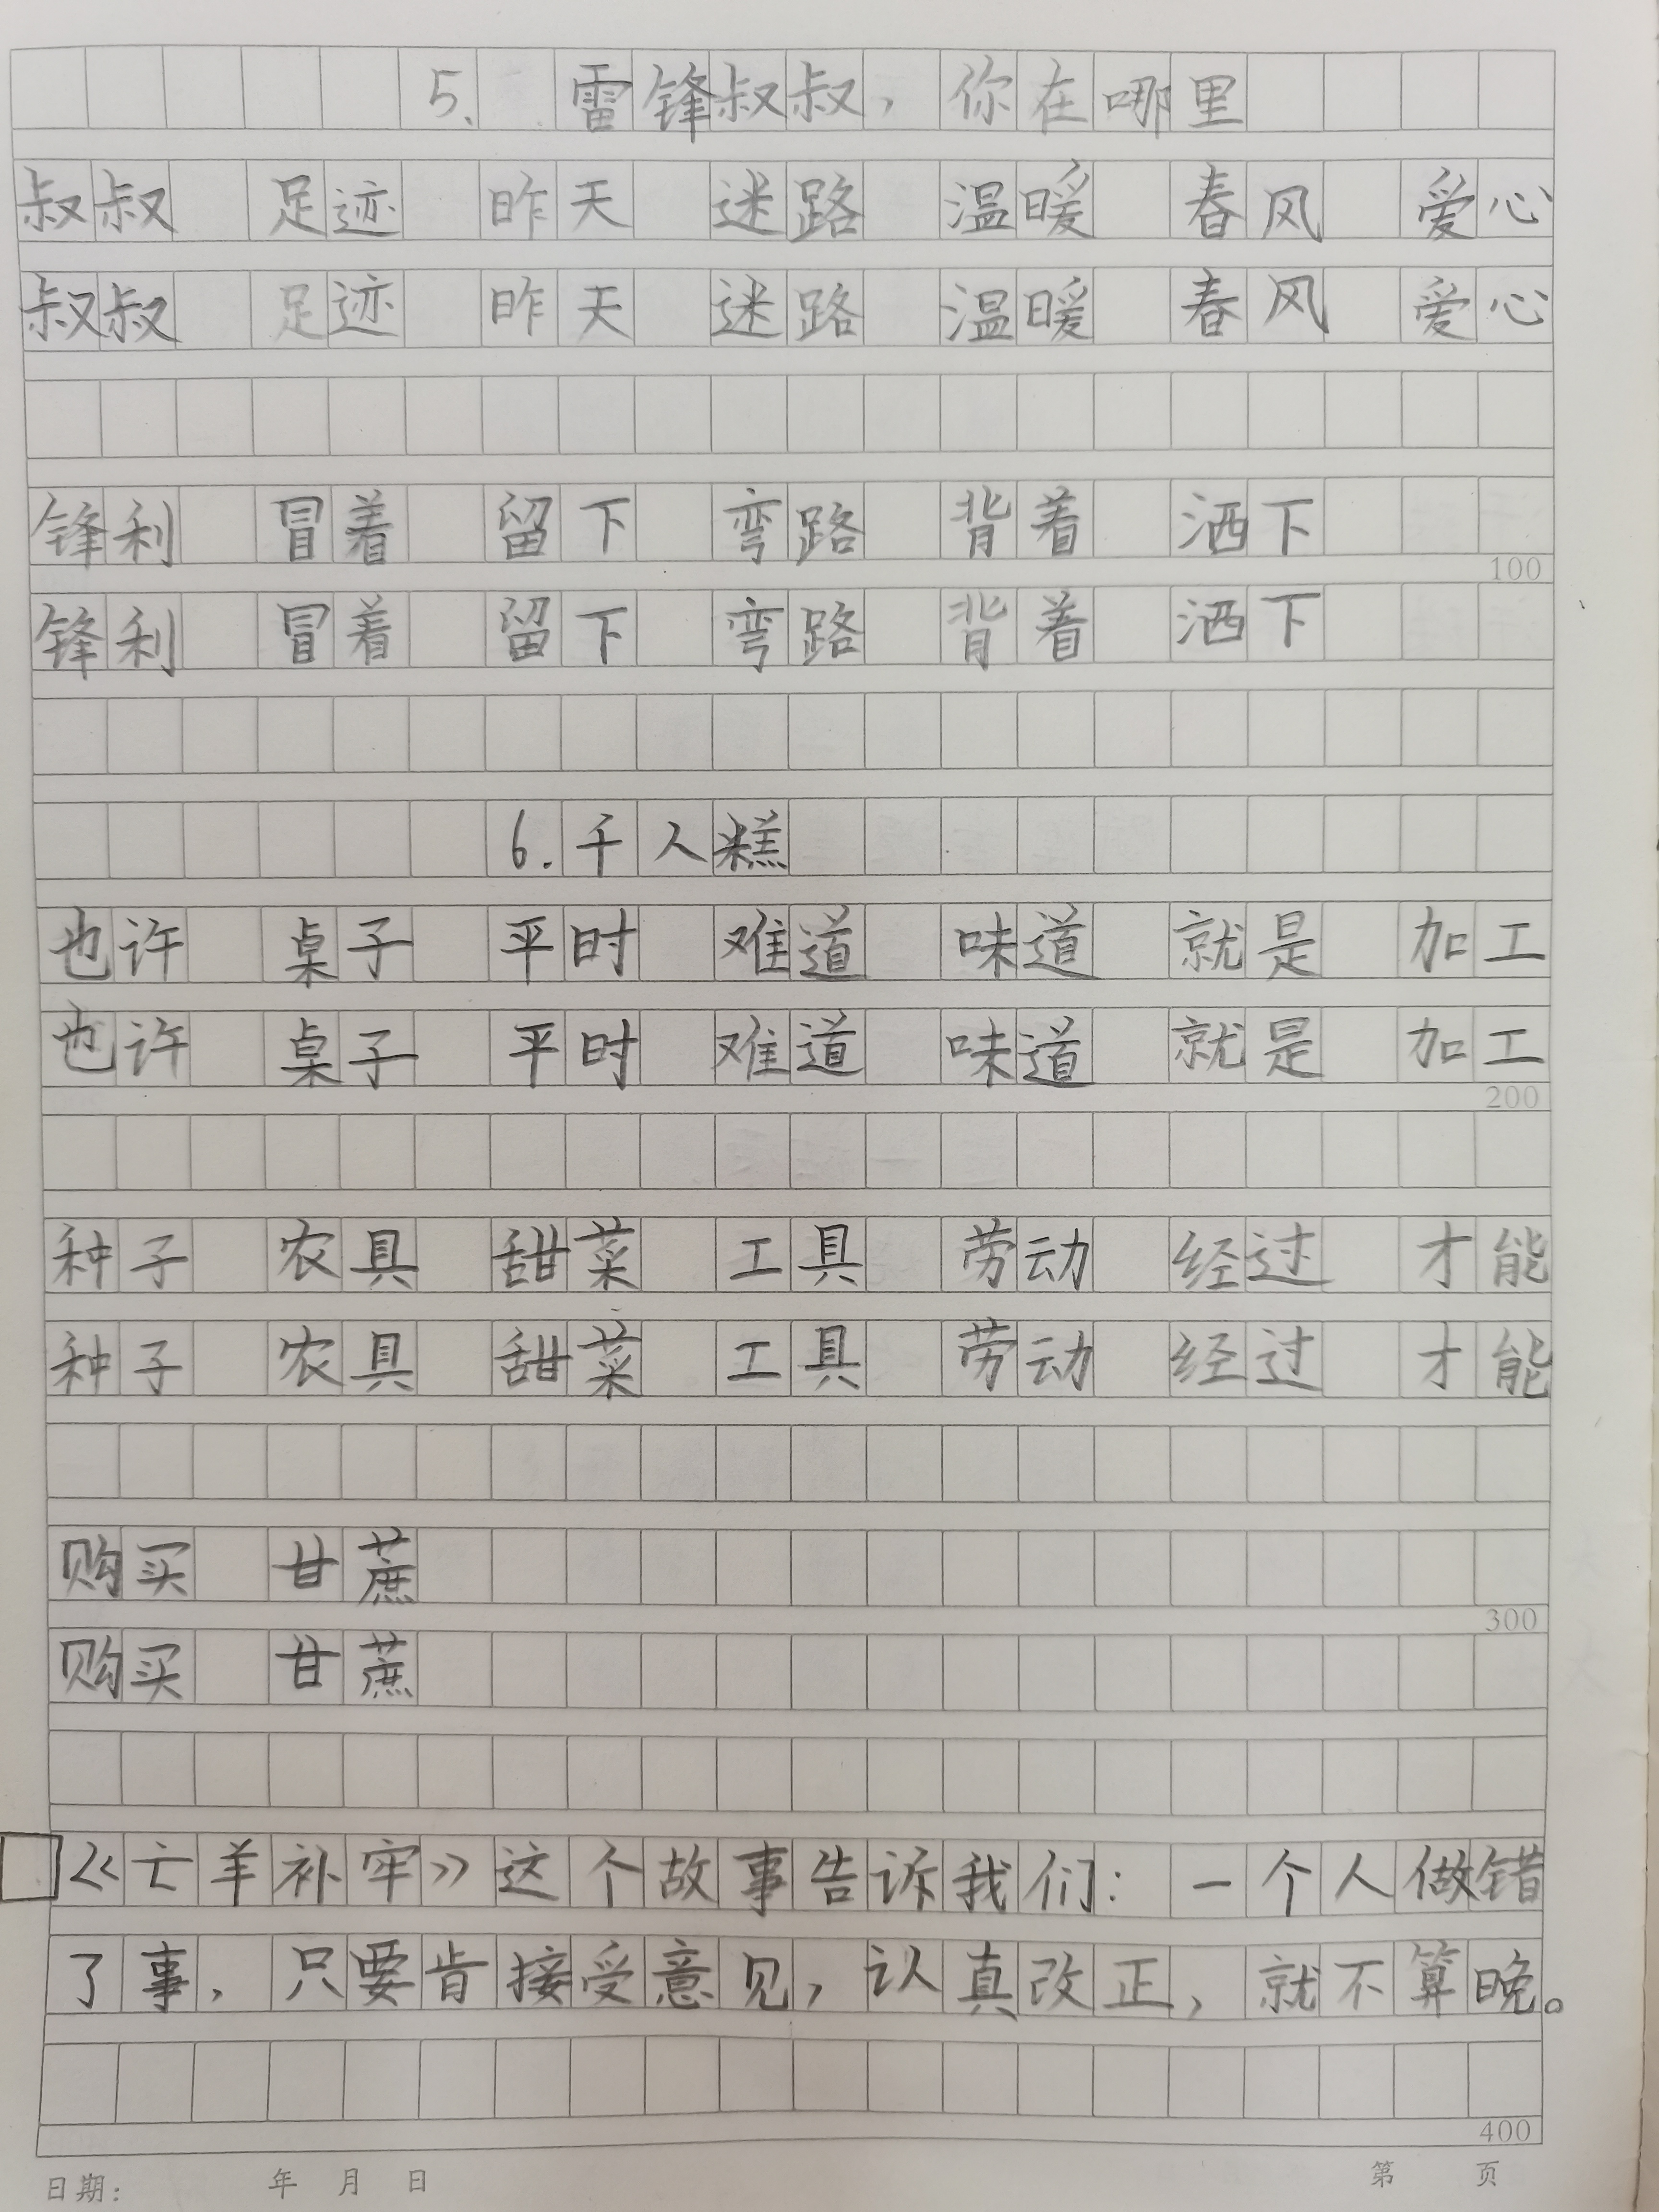 5. 雷锋叔叔，你在哪里
叔叔 足迹 昨天 迷路 温暖 春风 爱心
叔叔 足迹 昨天 迷路 温暖 春风 爱心
锋利 冒着 留下 弯路 背着 洒下
100
锋利 冒着 留下 弯路 背着 洒下
6. 千人糕
也许 桌子 平时 难道 味道 就是 加工
也许 桌子 平时 难道 味道 就是 加工
200
种子 农具 甜菜 工具 劳动 经过 才能
种子 农具 甜菜 工具 劳动 经过 才能
购买 甘蔗
300
购买 甘蔗
《亡羊补牢》这个故事告诉我们：一个人做错
了事，只要肯接受意见，认真改正，就不算晚。
400
日期： 年 月 日 第 页